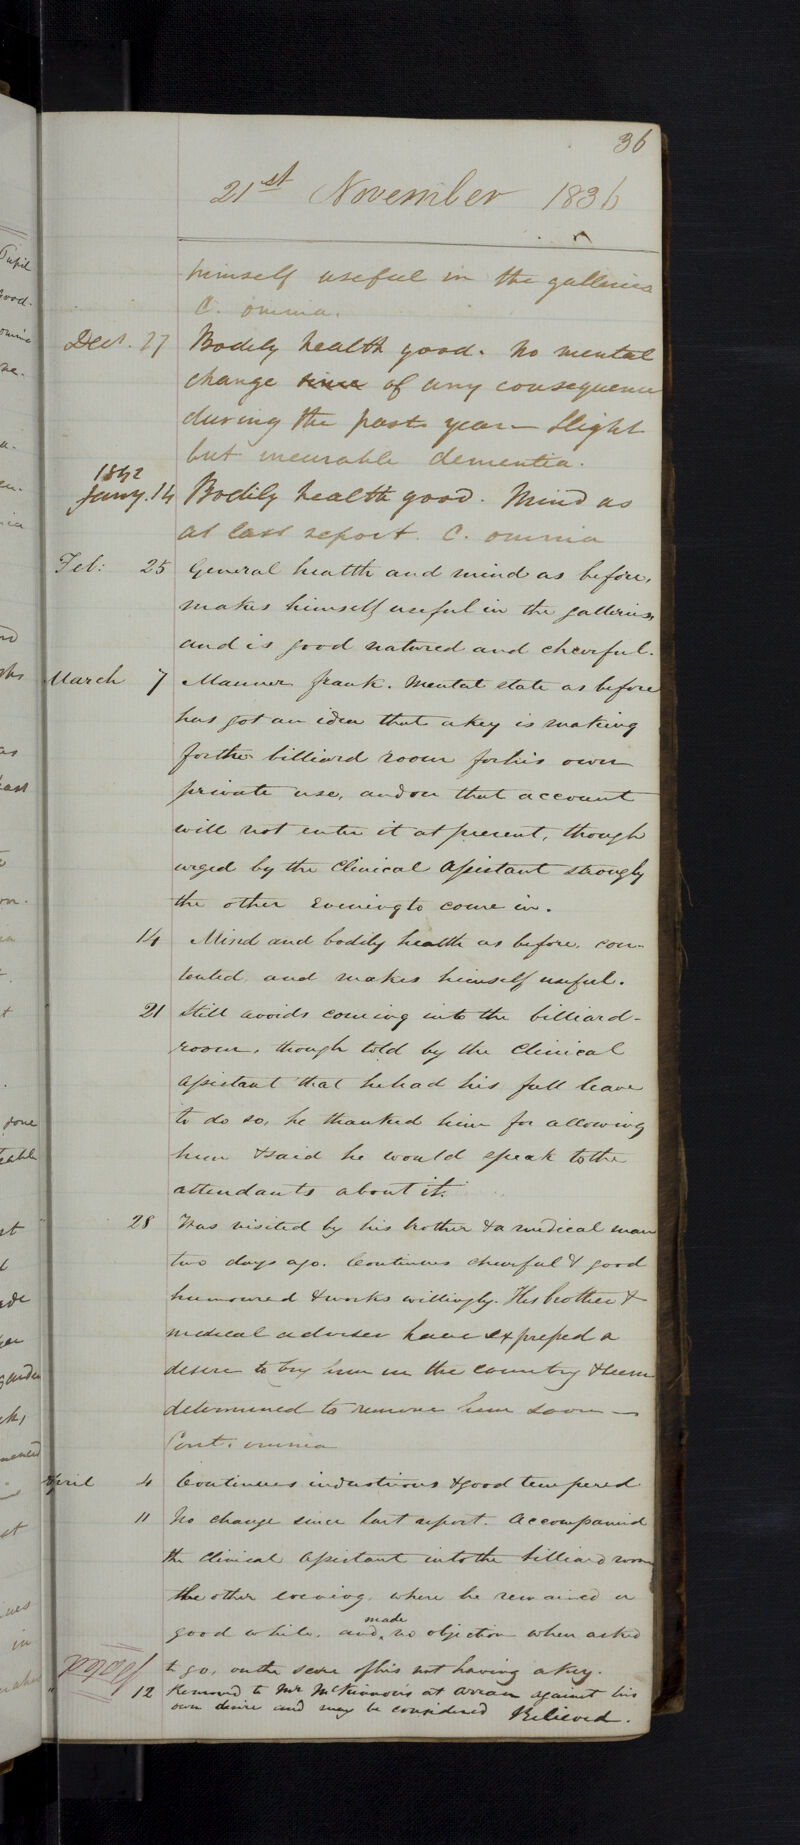 36
21st November 1836
himself useful in the galleries
C. omnia.
Decr. 27 Bodily health good. No mental
change since of any consequence
during the past year — Slight
but incurable dementia.
1842
Jany. 14 Bodily health good. Mind as
at last report. C. omnia
Feb: 25 General health and mind as before,
makes himself useful in the galleries,
and is good natured and cheerful.
March 7 Manner frank. Mental state as before
has got an idea that a key is making
for the billiard room for his own
private use, and on that account
will not enter it at present, though
urged by the Clinical Assistant strongly
the other evening to come in.
14 Mind and bodily health as before, con-
tented, and makes himself useful.
21 Still avoids coming into the billiard-
room, though told by the Clinical
Assistant that he had his full leave
to do so, he thanked him for allowing
him & said he would speak to the
attendants about it.
28 Was visited by his brother & a medical man
two days ago. Continues cheerful & good
humoured & works willingly. His brother &
medical adviser have expressed a
desire to try him in the country & seem
determined to remove him soon —
Cont: omnia
April 4 Continues industrious & good tempered.
11 No change since last report. Accompanied
the Clinical Assistant into the billiard room
the other evening, where he remained a
good while, and made no objection when asked
to go, on the score of his not having a key.
" 12 Removed to Mr McKinnon's at Arran against his
own desire and may be considered Relieved.